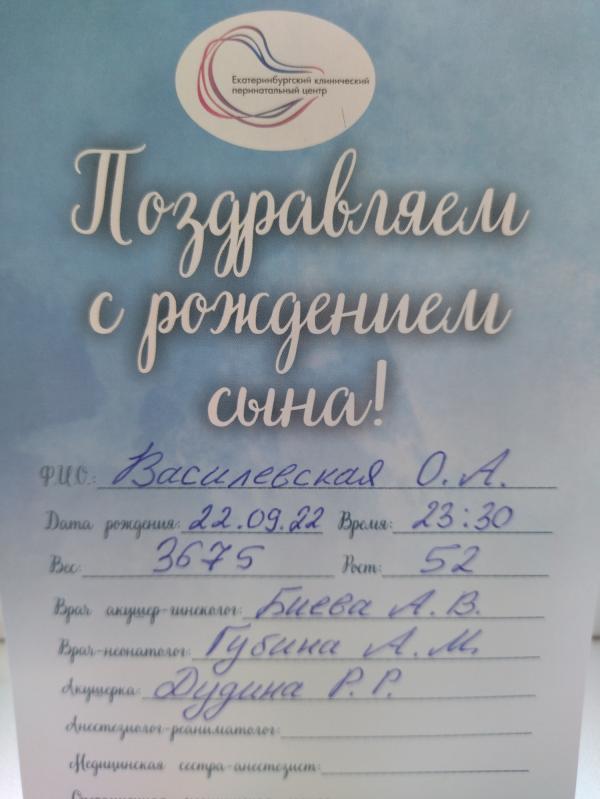 Екатеринбургский клинический
перинатальный центр
Поздравляем
с рождением
сына!
Ф.И.О.: Василевская О. А.
Дата рождения: 22.09.22 Время: 23:30
Вес: 3675 Рост: 52
Врач акушер-гинеколог: Биева А. В.
Врач-неонатолог: Губина А. М.
Акушерка: Дудина Р. Р.
Анестезиолог-реаниматолог:
Медицинская сестра-анестезист: